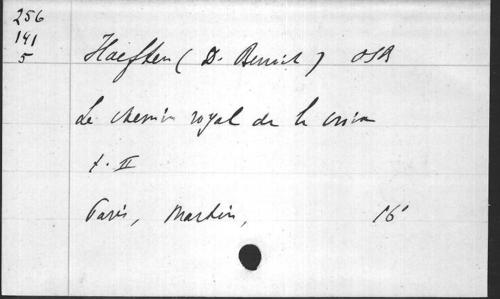 256
141
5
Haeften (D. Benoit) OSB
Le chemin royal de la croix
t. II
Paris, Martin, 16°